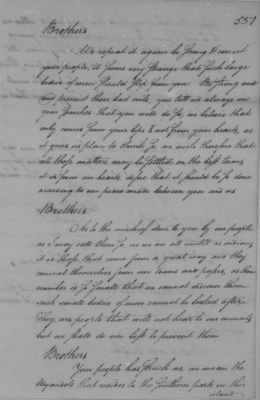 557
Brothers
We repeat it again be Strong & correct
your people, it seems very Strange that Such large
bodies of men Should Slip from you. Be Strong and
and prevent these bad evils, you tell us always in
your Speeches that you will do So, we believe that
only comes from your lips & not from your hearts, as
it gives us place to think So, we wish therefore that
all these matters may be Settled on the best terms
it is from our hearts desire that it Should be So done
according to our peace made between you and us
Brothers
As to the mischief done to you by our people
as I may call them So, as we are all united as indians,
it is those that come from a great way and they
conceal themselves from our towns and passes, as their
number is So Small that we cannot discover them
such small bodies of men cannot be looked after.
They are people that will not hear to our councils
but we Shall do our best to prevent them
Brothers
Your people has Struck us we mean the
that resides to the Southern parts in this
island